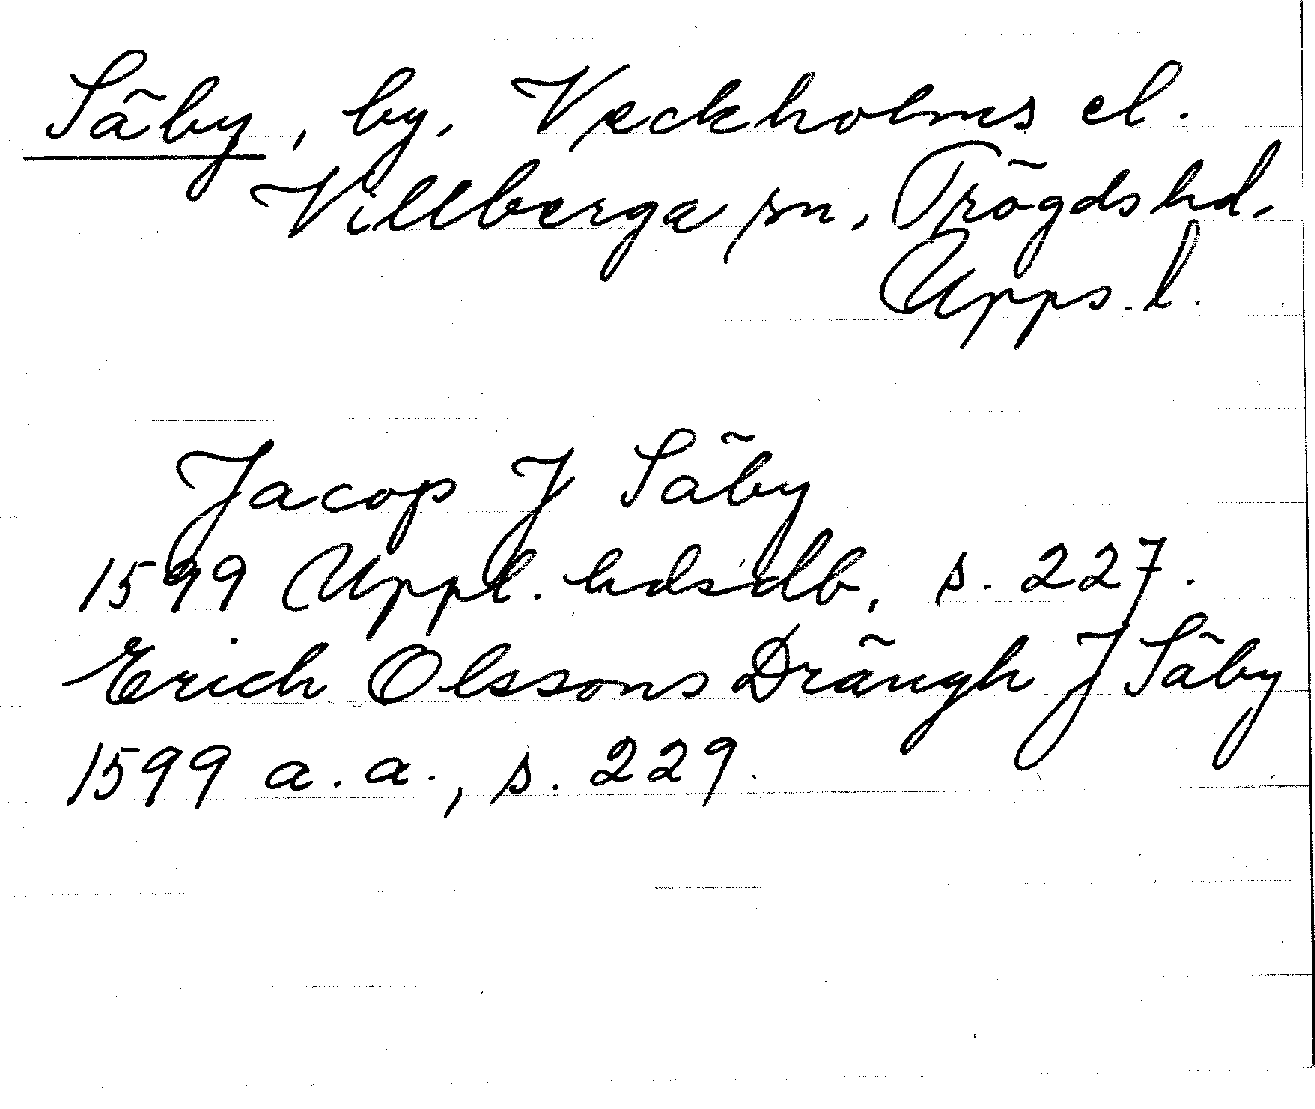 Säby, by, Veckholms el.
Villberga sn, Trögds hd,
Upps. l.
Jacop J Säby
1599 Uppl. hdsdb, s. 227.
Erich Olssons Drängh J Säby
1599 a.a., s. 229.